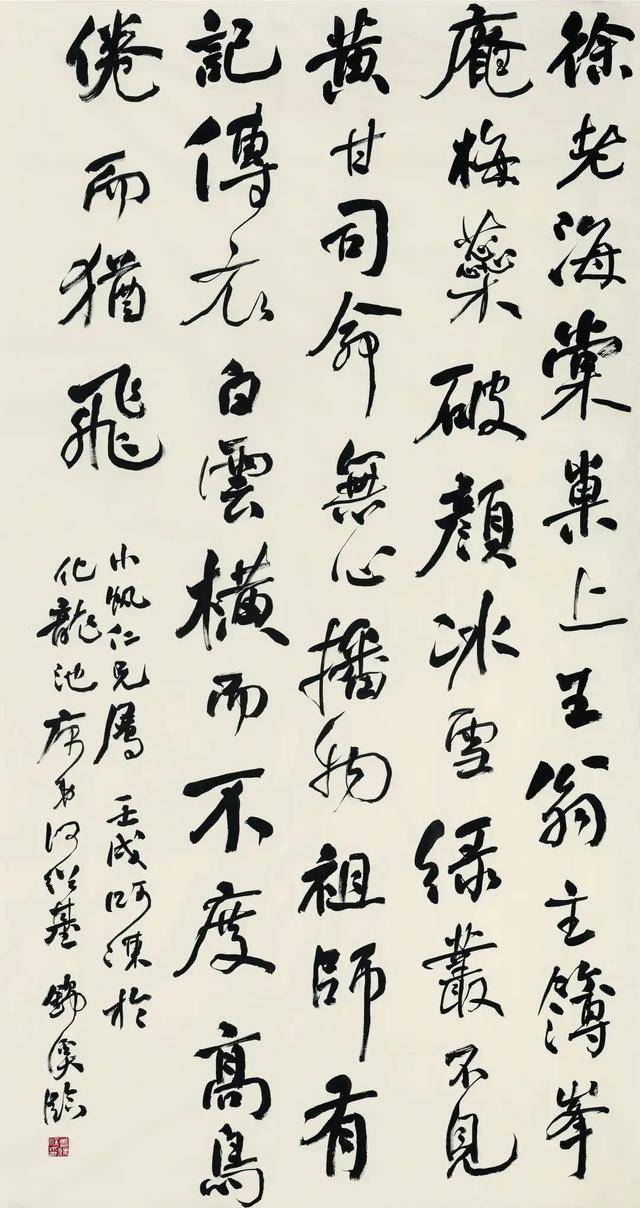 徐老海棠巢上王翁主簿峯
庵梅蘂破顏冰雪綠叢不見
黄甘司命無心播物祖師有
記傳衣白雲橫而不度高鳥
倦而猶飛
小帆仁兄屬 壬戌呵凍於
化龍池 弟何紹基 錫溪臨